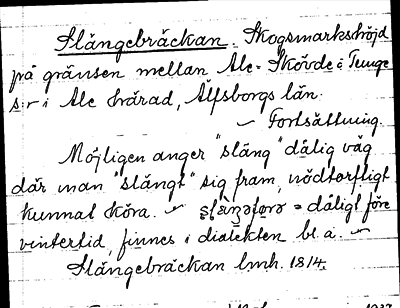 Slängebräckan. Skogsmarkshöjd
på gränsen mellan Ale-Skövde o Tunge
s:r i Ale härad, Älfsborgs län.
— Fortsättning.
Möjligen anger "släng" dålig väg
där man "slängt" sig fram, nödtorftligt
kunnat köra. — = dåligt före
vintertid, finnes i dialekten bl. a. —
Slängebräckan lmh. 1814.